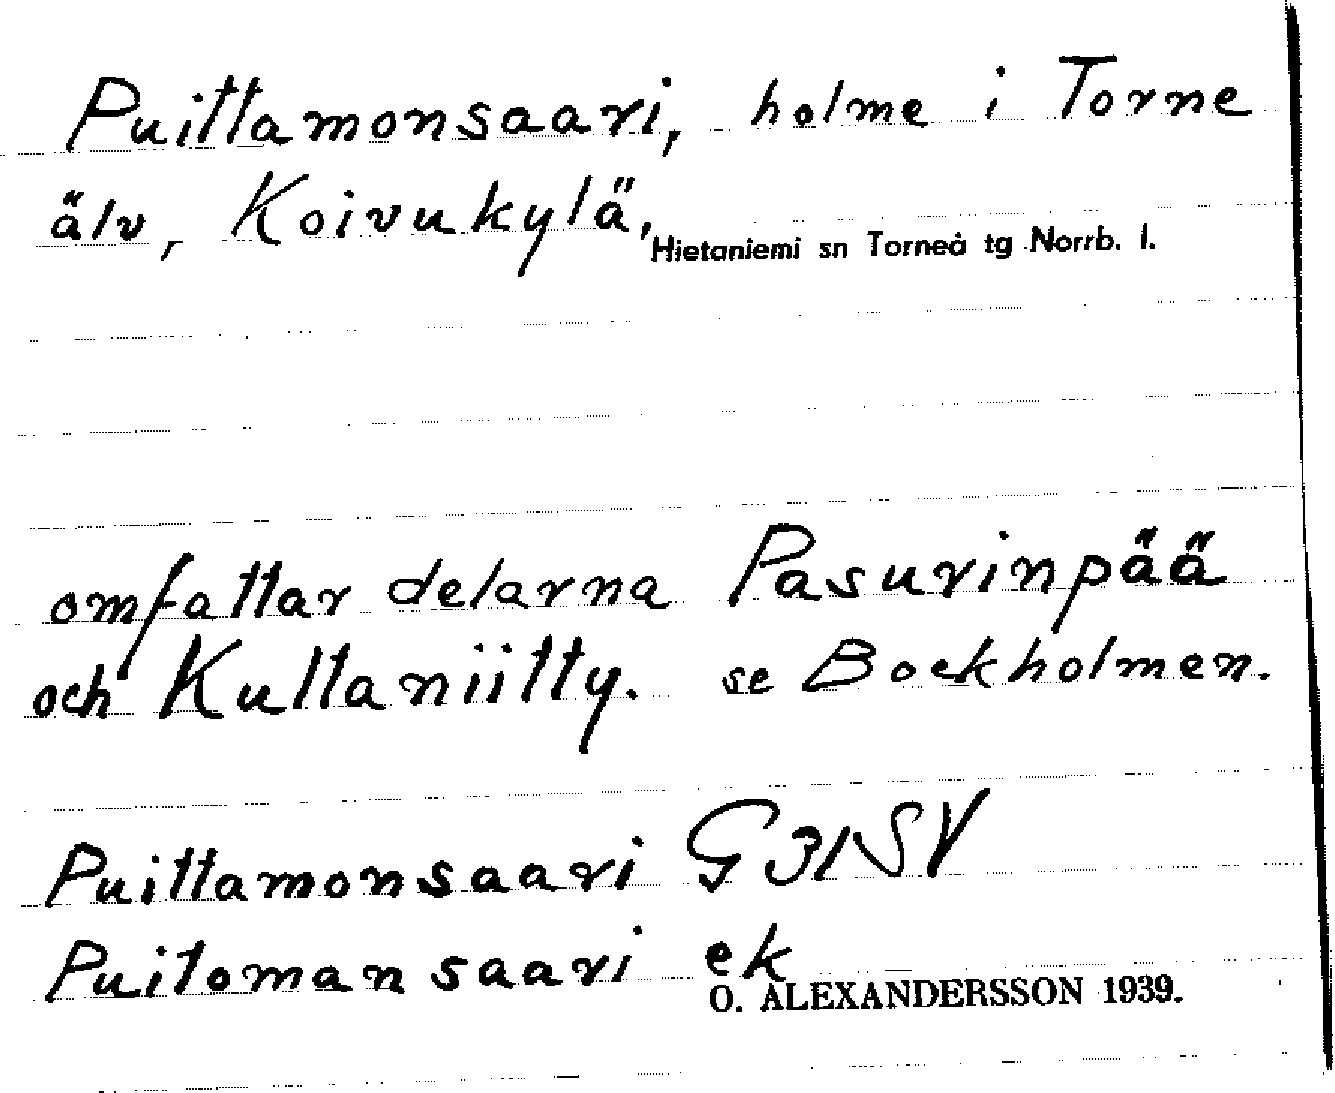 Puittamonsaari, holme i Torne
älv, Koivukylä, Hietaniemi sn Torneå tg Norrb. l.
omfattar delarna Pasurinpää
och Kultaniitty. se Bockholmen.
Puittamonsaari G31SV
Puitomansaari ek
O. ALEXANDERSSON 1939.